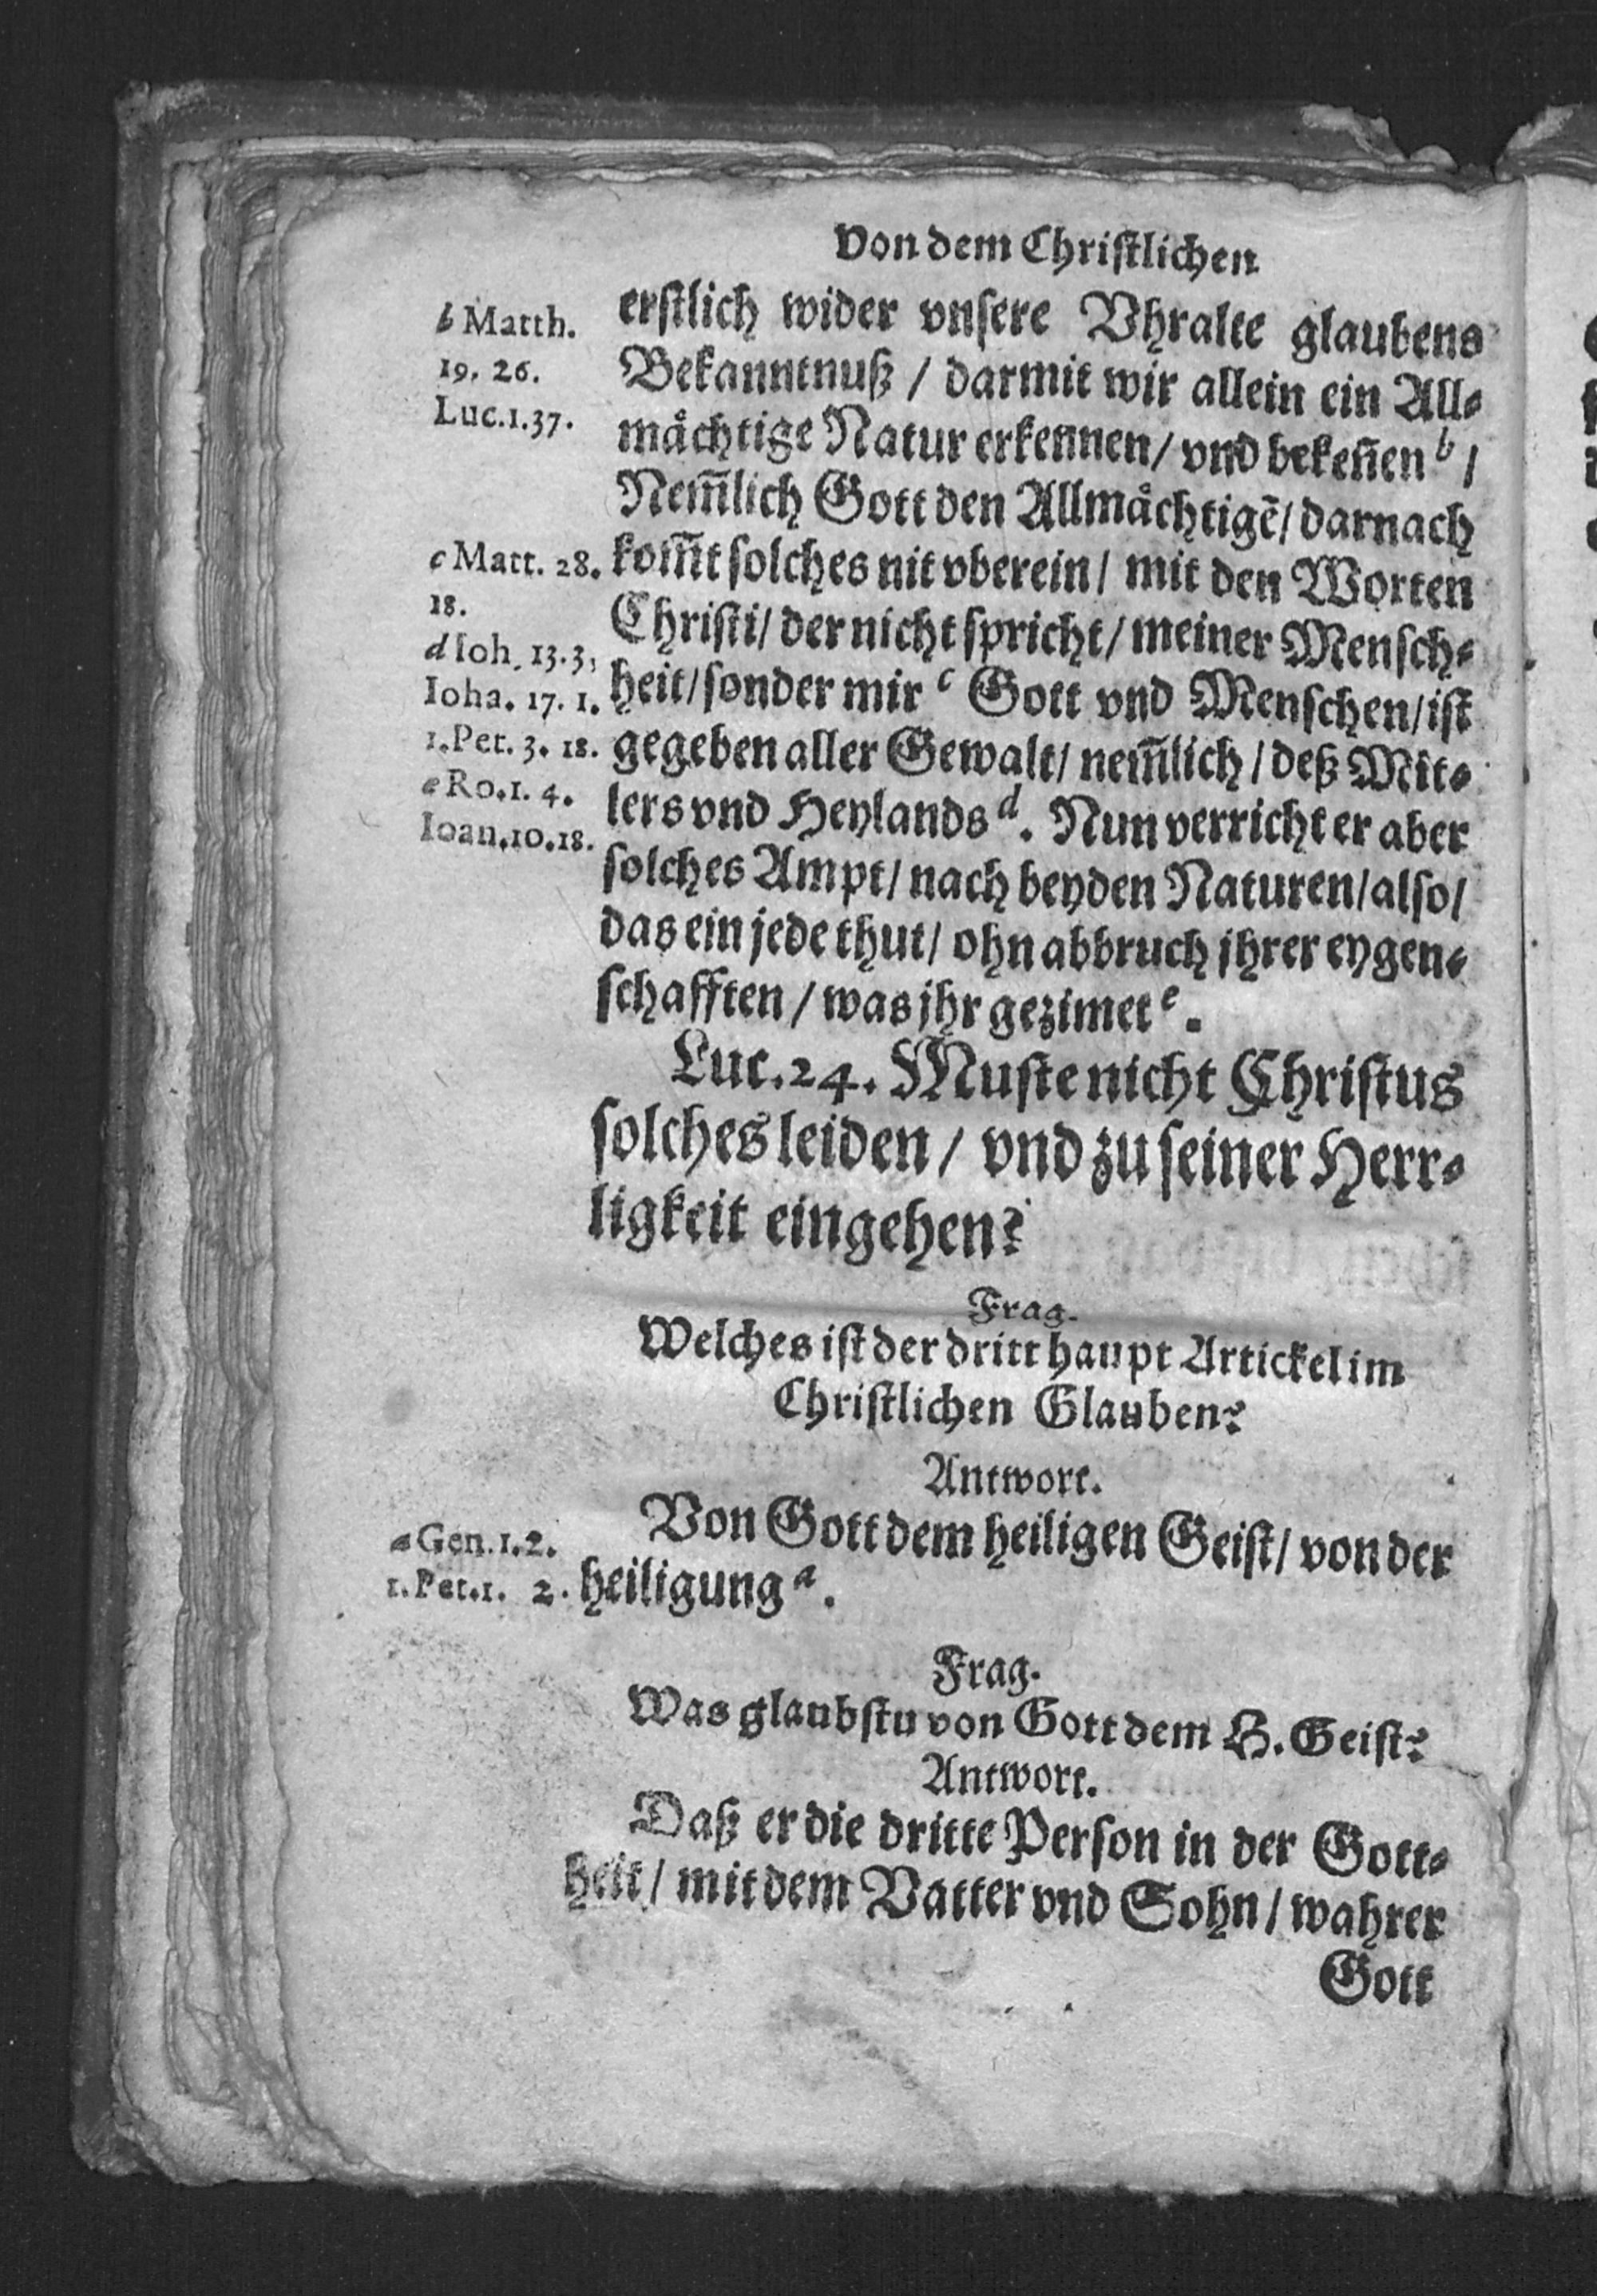 Von dem Christlichen
b Matth.
19. 26.
Luc.1.37.
c Matt. 28.
18.
d Ioh. 13.3,
Ioha. 17. 1.
1.Pet. 3. 18.
e Ro.1. 4.
Ioan.10.18.
erstlich wider vnsere Vhralte glaubens
Bekanntnuß / darmit wir allein ein All-
mächtige Natur erkennen/ vnd bekeñen b /
Nem̃lich Gott den Allmächtigẽ/ darnach
kom̃t solches nit vberein / mit den Worten
Christi/ der nicht spricht/ meiner Mensch-
heit/ sonder mir c Gott vnd Menschen/ ist
gegeben aller Gewalt/ nem̃lich / deß Mit-
lers vnd Heylands d. Nun verricht er aber
solches Ampt/ nach beyden Naturen/ also/
das ein jede thut/ ohn abbruch jhrer eygen-
schafften / was jhr gezimet e.
Luc. 24. Muste nicht Christus
solches leiden / vnd zu seiner Herr-
ligkeit eingehen?
Frag.
Welches ist der dritt haupt Artickel im
Christlichen Glauben?
Antwort.
a Gen. 1.2.
1.Pet.1. 2.
Von Gott dem heiligen Geist/ von der
heiligung a.
Frag.
Was glaubstu von Gott dem H. Geist?
Antwort.
Daß er die dritte Person in der Gott-
heit / mit dem Vatter vnd Sohn / wahrer
Gott